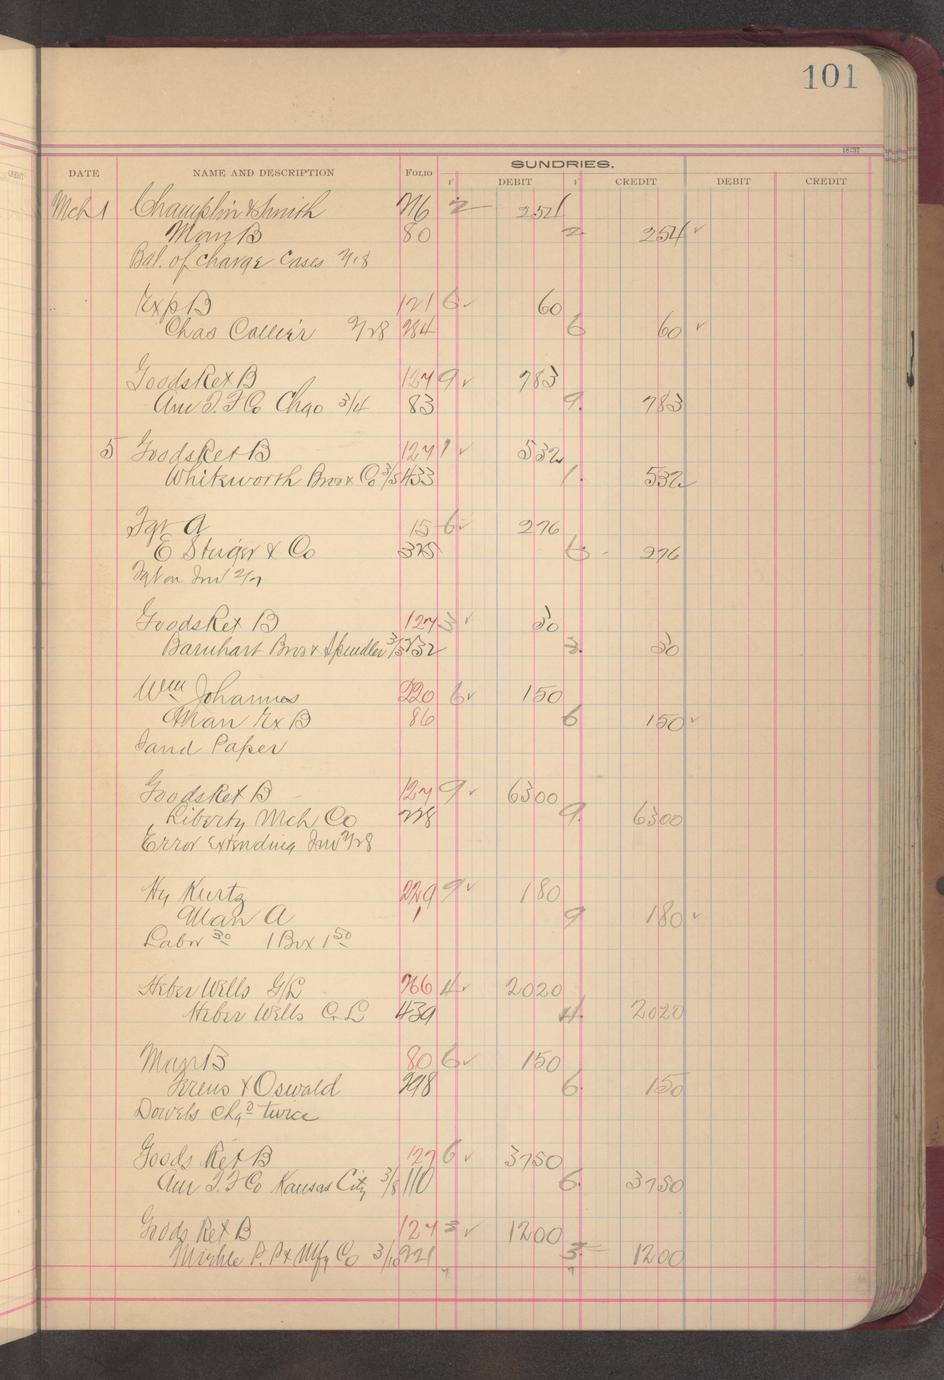 101
18237
SUNDRIES.
CREDIT DATE NAME AND DESCRIPTION FOLIO √ DEBIT √ CREDIT DEBIT CREDIT
Mch 1 Champlin & Smith 76 2 254
Man B 80 2 254 ✓
Bal. of charge Cases 2/18
Exp B 121 6 ✓ 60
Chas Collier 2/28 284 6 60 ✓
Goods Ret B 127 9 ✓ 783
Am T. F Co Chgo 3/4 83 9. 783
5 Goods Ret B 127 1 ✓ 532
Whitworth Bros & Co 3/5 433 1. 532
Fgt A 15 6 ✓ 276
E Steiger & Co 325 6 - 276
Fgt on Inv 2/7
Goods Ret B 127 3 ✓ 30
Barnhart Bros & Spindler 3/3 3. 30
Wm Johannes 220 6 ✓ 150
Man Ex B 86 6 150 ✓
Sand Paper
Goods Ret B 127 9 ✓ 6300
Liberty Mch Co 278 9. 6300
Error Extending Inv 2/28
Hy Kurtz 229 9 ✓ 180
Man A 1 9 180 ✓
Labor 30 1 Box 1 50
Heber Wells G/L 266 4 ✓ 2020
Heber Wells C. L 439 4. 2020
Man B 80 6 ✓ 150
& Oswald 298 6. 150
Dowels chgd twice
Goods Ret B 127 6 ✓ 3750
Am T. F Co Kansas City 3/8 110 6. 3750
Goods Ret B 127 3 ✓ 1200
P. P & Mfg Co 3/10 221 3. 1200